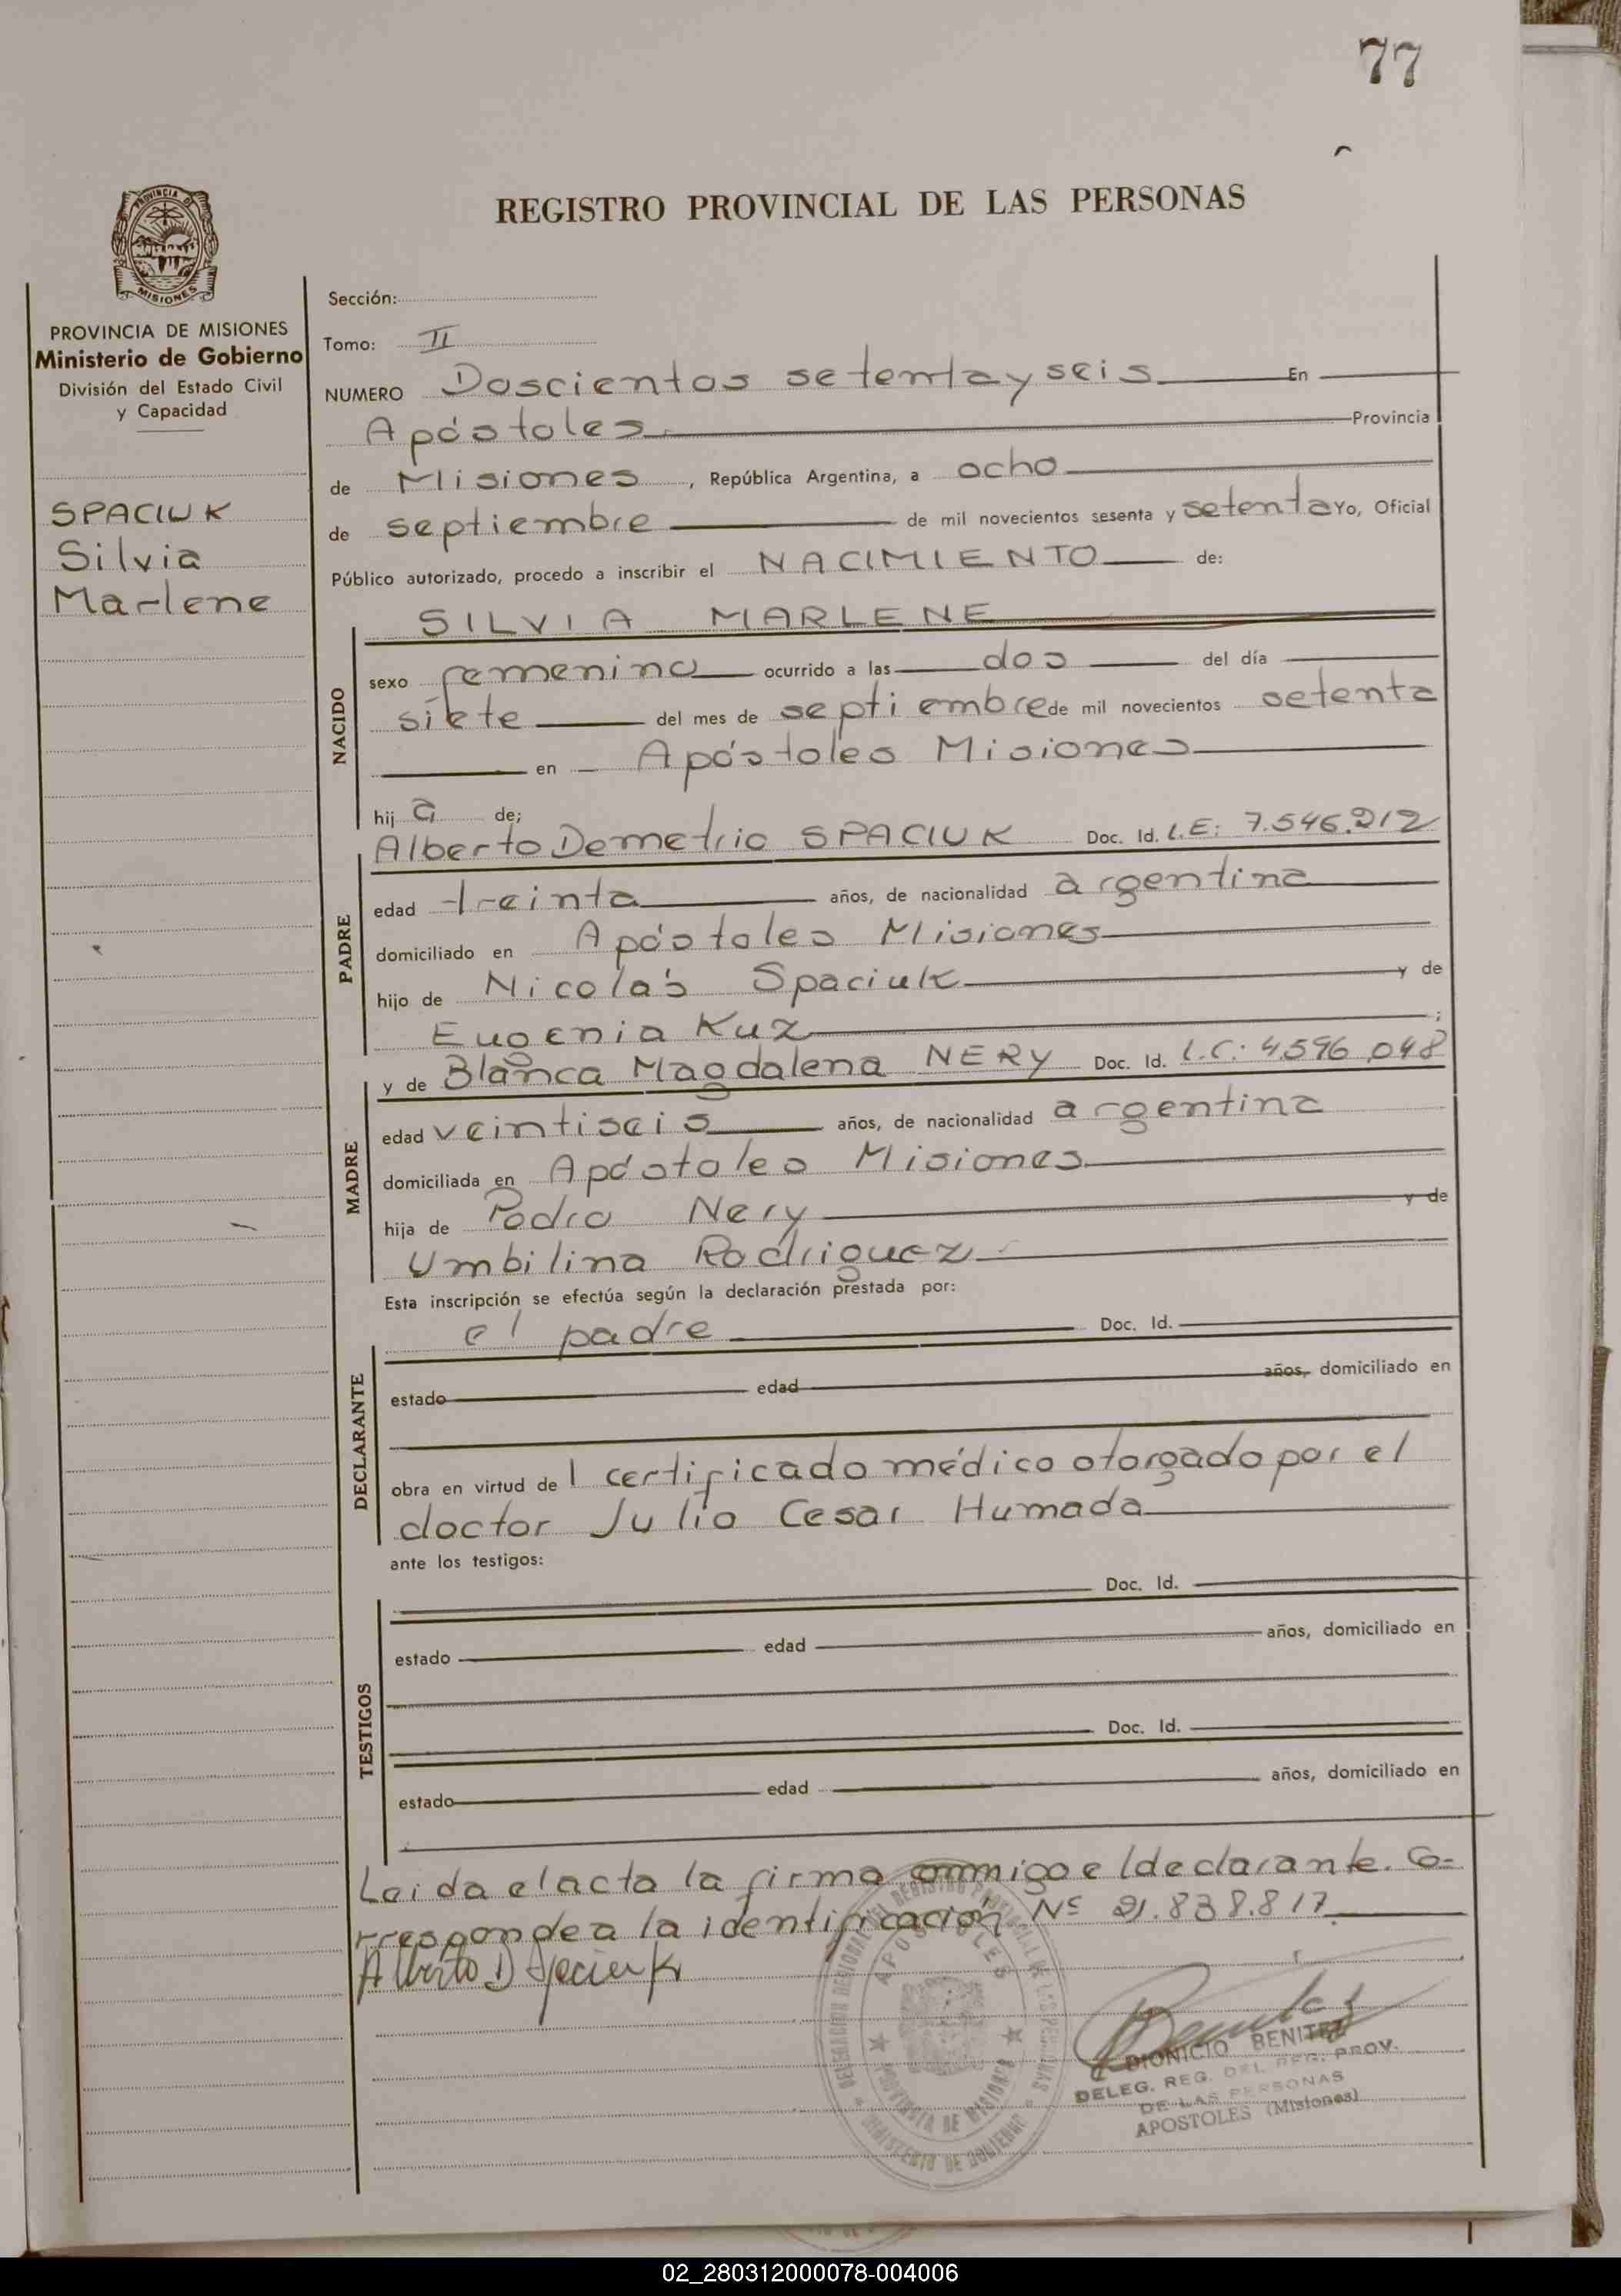 77
REGISTRO PROVINCIAL DE LAS PERSONAS
PROVINCIA DE MISIONES
Ministerio de Gobierno
División del Estado Civil
y Capacidad
SPACIUK
Silvia
Marlene
Sección:
Tomo: II
NUMERO Doscientos setenta y seis En
Apóstoles Provincia
de Misiones, República Argentina, a ocho
de septiembre de mil novecientos sesenta y setenta Yo, Oficial
Público autorizado, procedo a inscribir el NACIMIENTO de:
NACIDO
SILVIA MARLENE
sexo femenino ocurrido a las dos del día
siete del mes de septiembre de mil novecientos setenta
en Apóstoles Misiones
hij a de;
PADRE
Alberto Demetrio SPACIUK Doc. Id. L.E: 7.546.212
edad treinta años, de nacionalidad argentina
domiciliado en Apóstoles Misiones
hijo de Nicolás Spaciuk y de
Eugenia Kuz ;
MADRE
y de Blanca Magdalena NERY Doc. Id. L.C: 4.596.048
edad veintiseis años, de nacionalidad argentina
domiciliada en Apóstoles Misiones
hija de Pedro Nery y de
Umbilina Rodriguez
Esta inscripción se efectúa según la declaración prestada por:
DECLARANTE
el padre Doc. Id.
estado edad años, domiciliado en
obra en virtud de l certificado médico otorgado por el
doctor Julio Cesar Humada
ante los testigos:
TESTIGOS
Doc. Id.
estado edad años, domiciliado en
Doc. Id.
estado edad años, domiciliado en
Leida el acta la firma conmigo el declarante. Co-
rresponde a la identificación Nº 21.838.817
Alberto D Spaciuk
DELEGACION REGIONAL DEL REGISTRO PROVINCIAL DE LAS PERSONAS
APOSTOLES
PROVINCIA DE MISIONES
MINISTERIO DE GOBIERNO
DIONICIO BENITEZ
DELEG. REG. DEL REG. PROV.
DE LAS PERSONAS
APOSTOLES (Misiones)
02_280312000078-004006